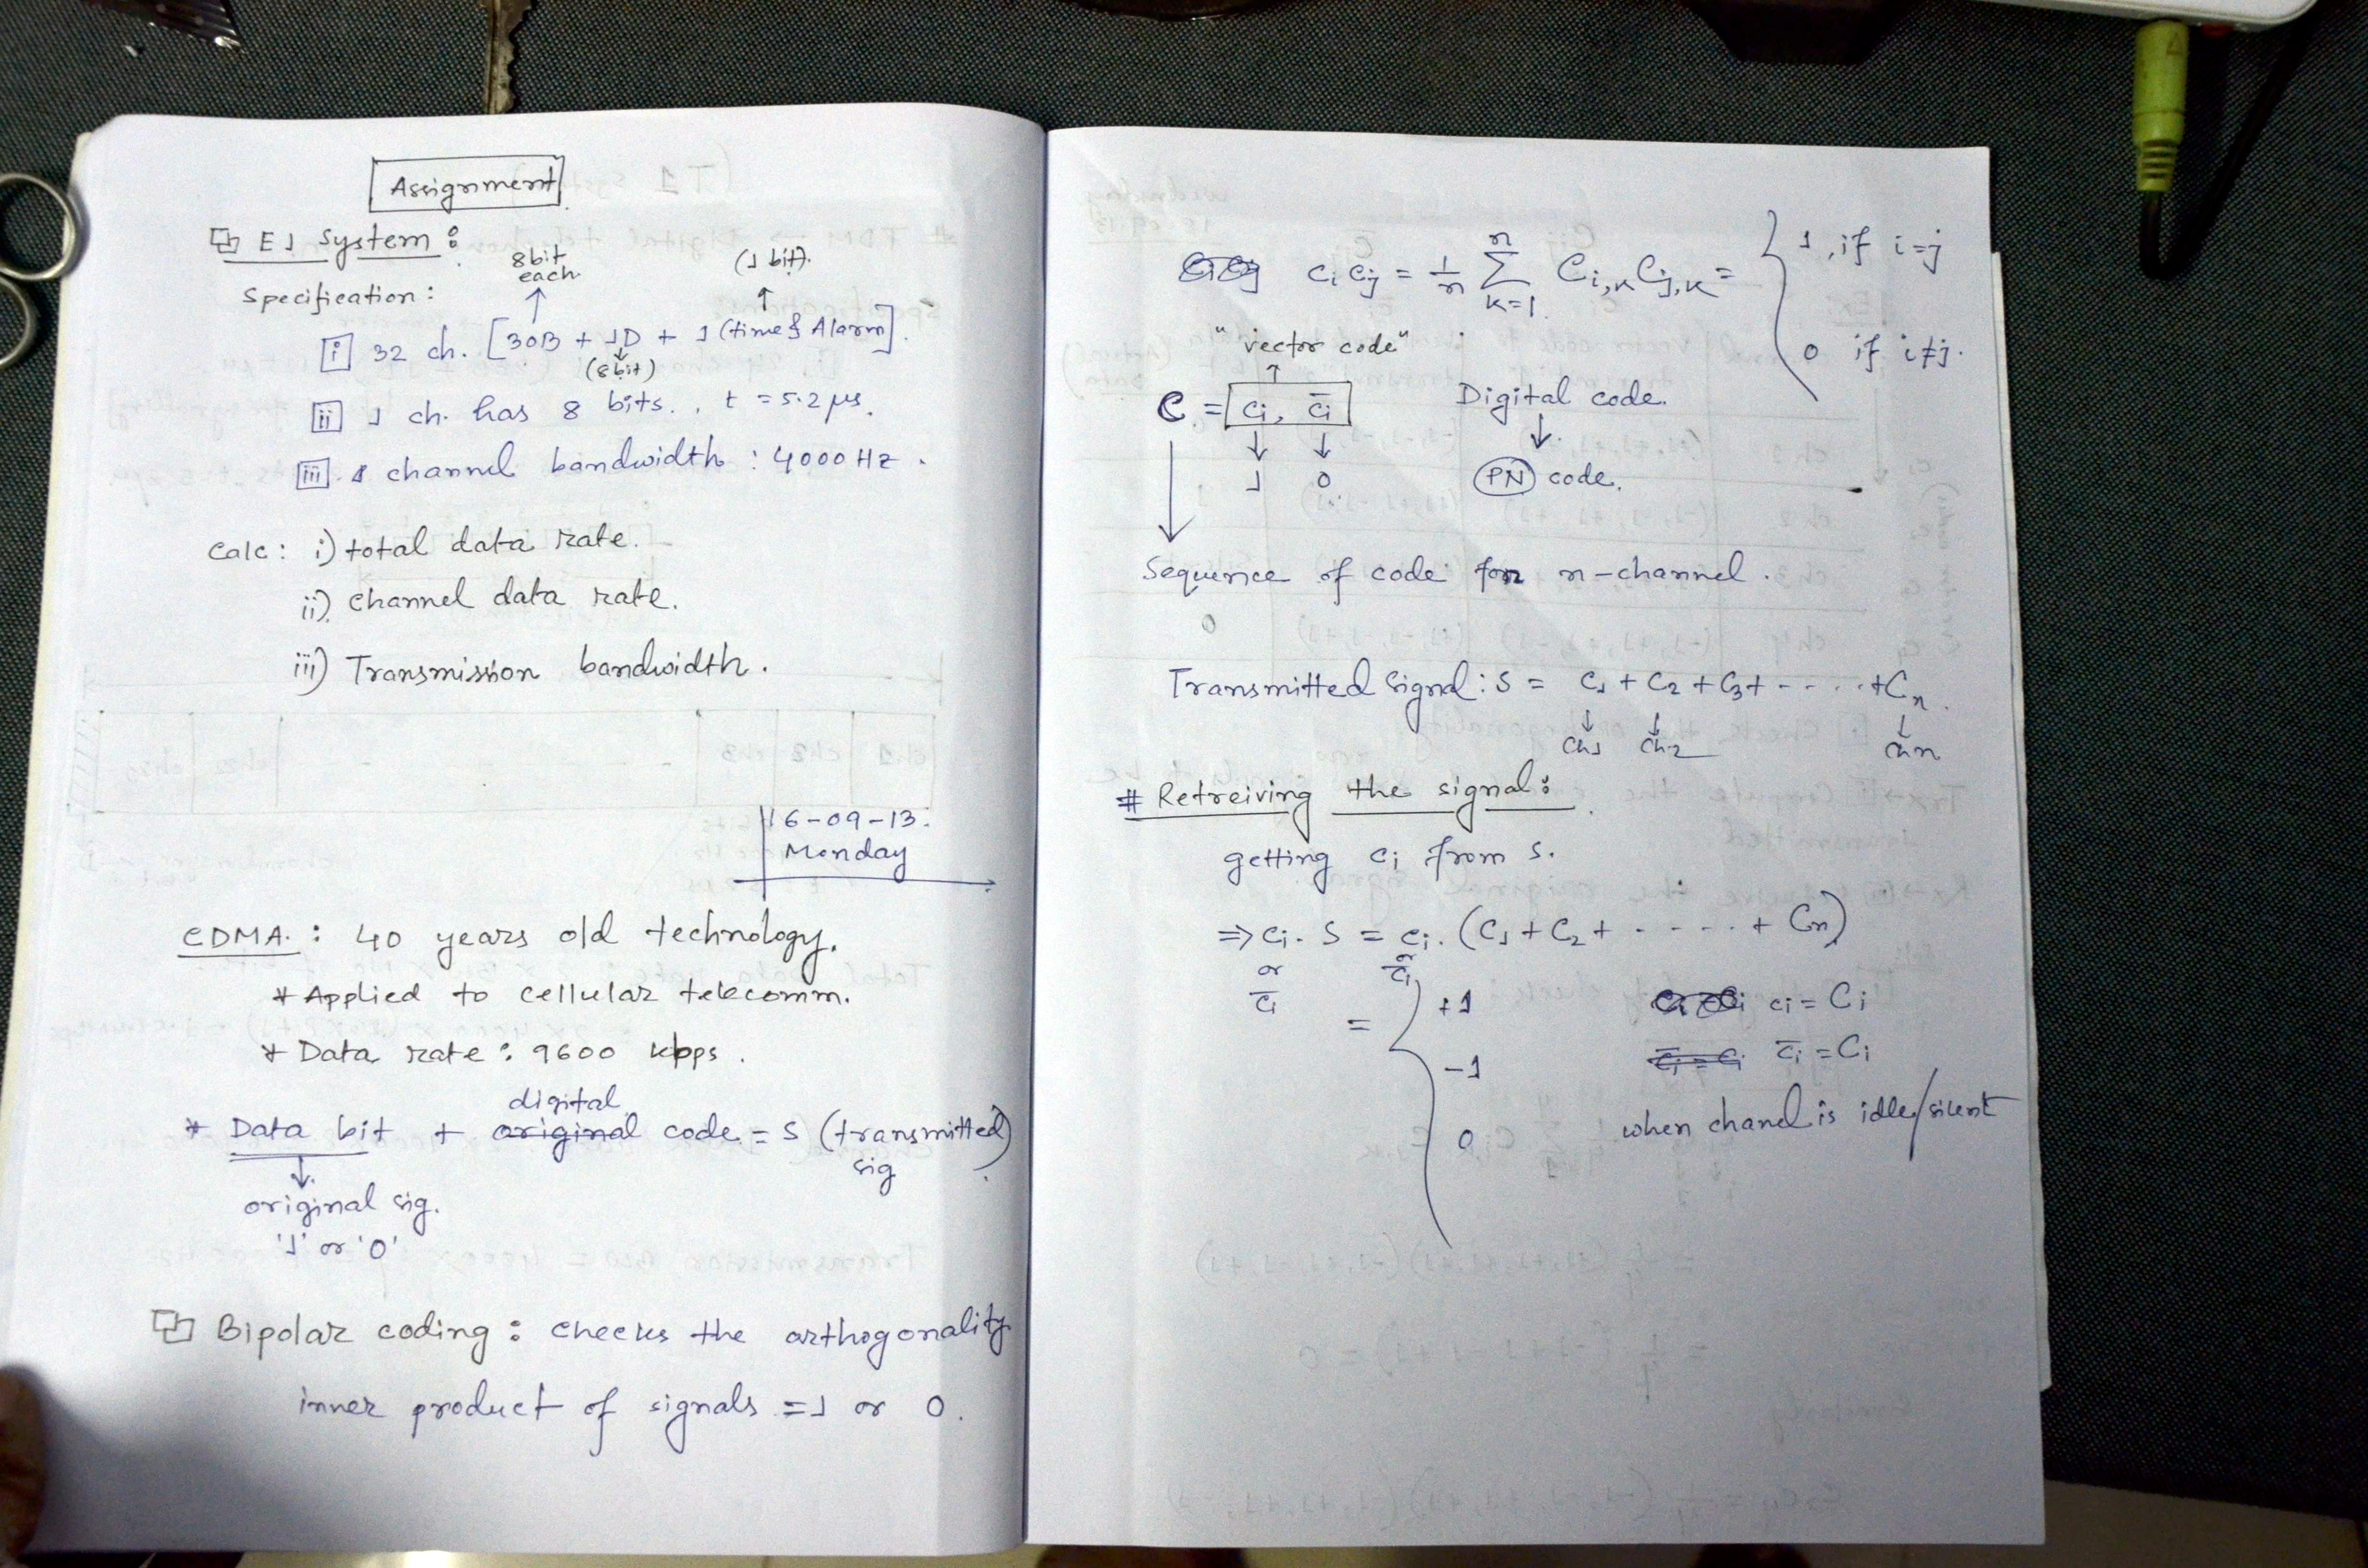 Assignment
E1 System :
8bit each
(1 bit).
Specification :
[i] 32 ch. [30B + 1D + 1 (time & Alarm)].
(8bit)
[ii] 1 ch. has 8 bits. , t = 5.2 μs.
[iii] 1 channel bandwidth : 4000 Hz .
Calc : i) total data rate.
ii) channel data rate.
iii) Transmission bandwidth.
16-09-13.
Monday
CDMA. : 40 years old technology.
* Applied to cellular telecomm.
* Data rate : 9600 kbps .
digital
* Data bit + original code = S (transmitted)
sig
↓
original sig.
'1' or '0'
Bipolar coding : checks the orthogonality
inner product of signals = 1 or 0.
Ci Cj = 1/n Σ k=1 n Ci,k Cj,k = { 1 , if i = j
0 if i ≠ j.
"vector code"
C = [Ci, C̄i]
↓ ↓
1 0
Digital code.
↓
(PN) code.
Sequence of code for n-channel .
Transmitted Signal : S = C1 + C2 + C3 + - - . . . + Cn .
↓ ↓ ↓
Ch1 Ch2 Chn
# Retreiving the signal :
getting Ci from S.
⇒ Ci . S = Ci . (C1 + C2 + - - - . + Cn)
or or
C̄i C̄i
= { +1 Ci = Ci
-1 C̄i = Ci
0 when chanel is idle/silent